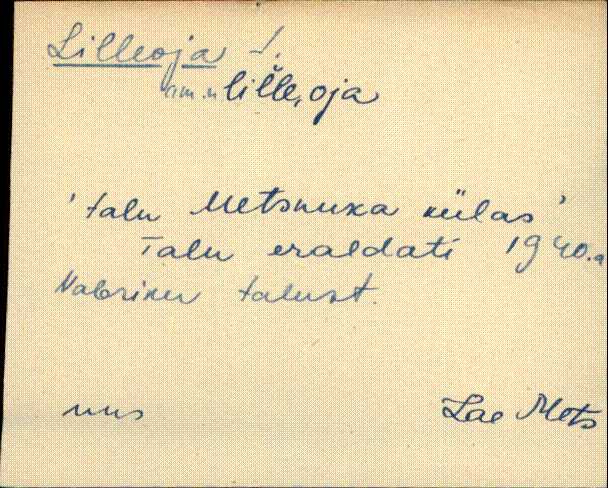 Lilleoja
am. n lille, oja
'talu Metsnuka külas'
Talu eraldati 1940.a
talust.
uus
Lae Mets